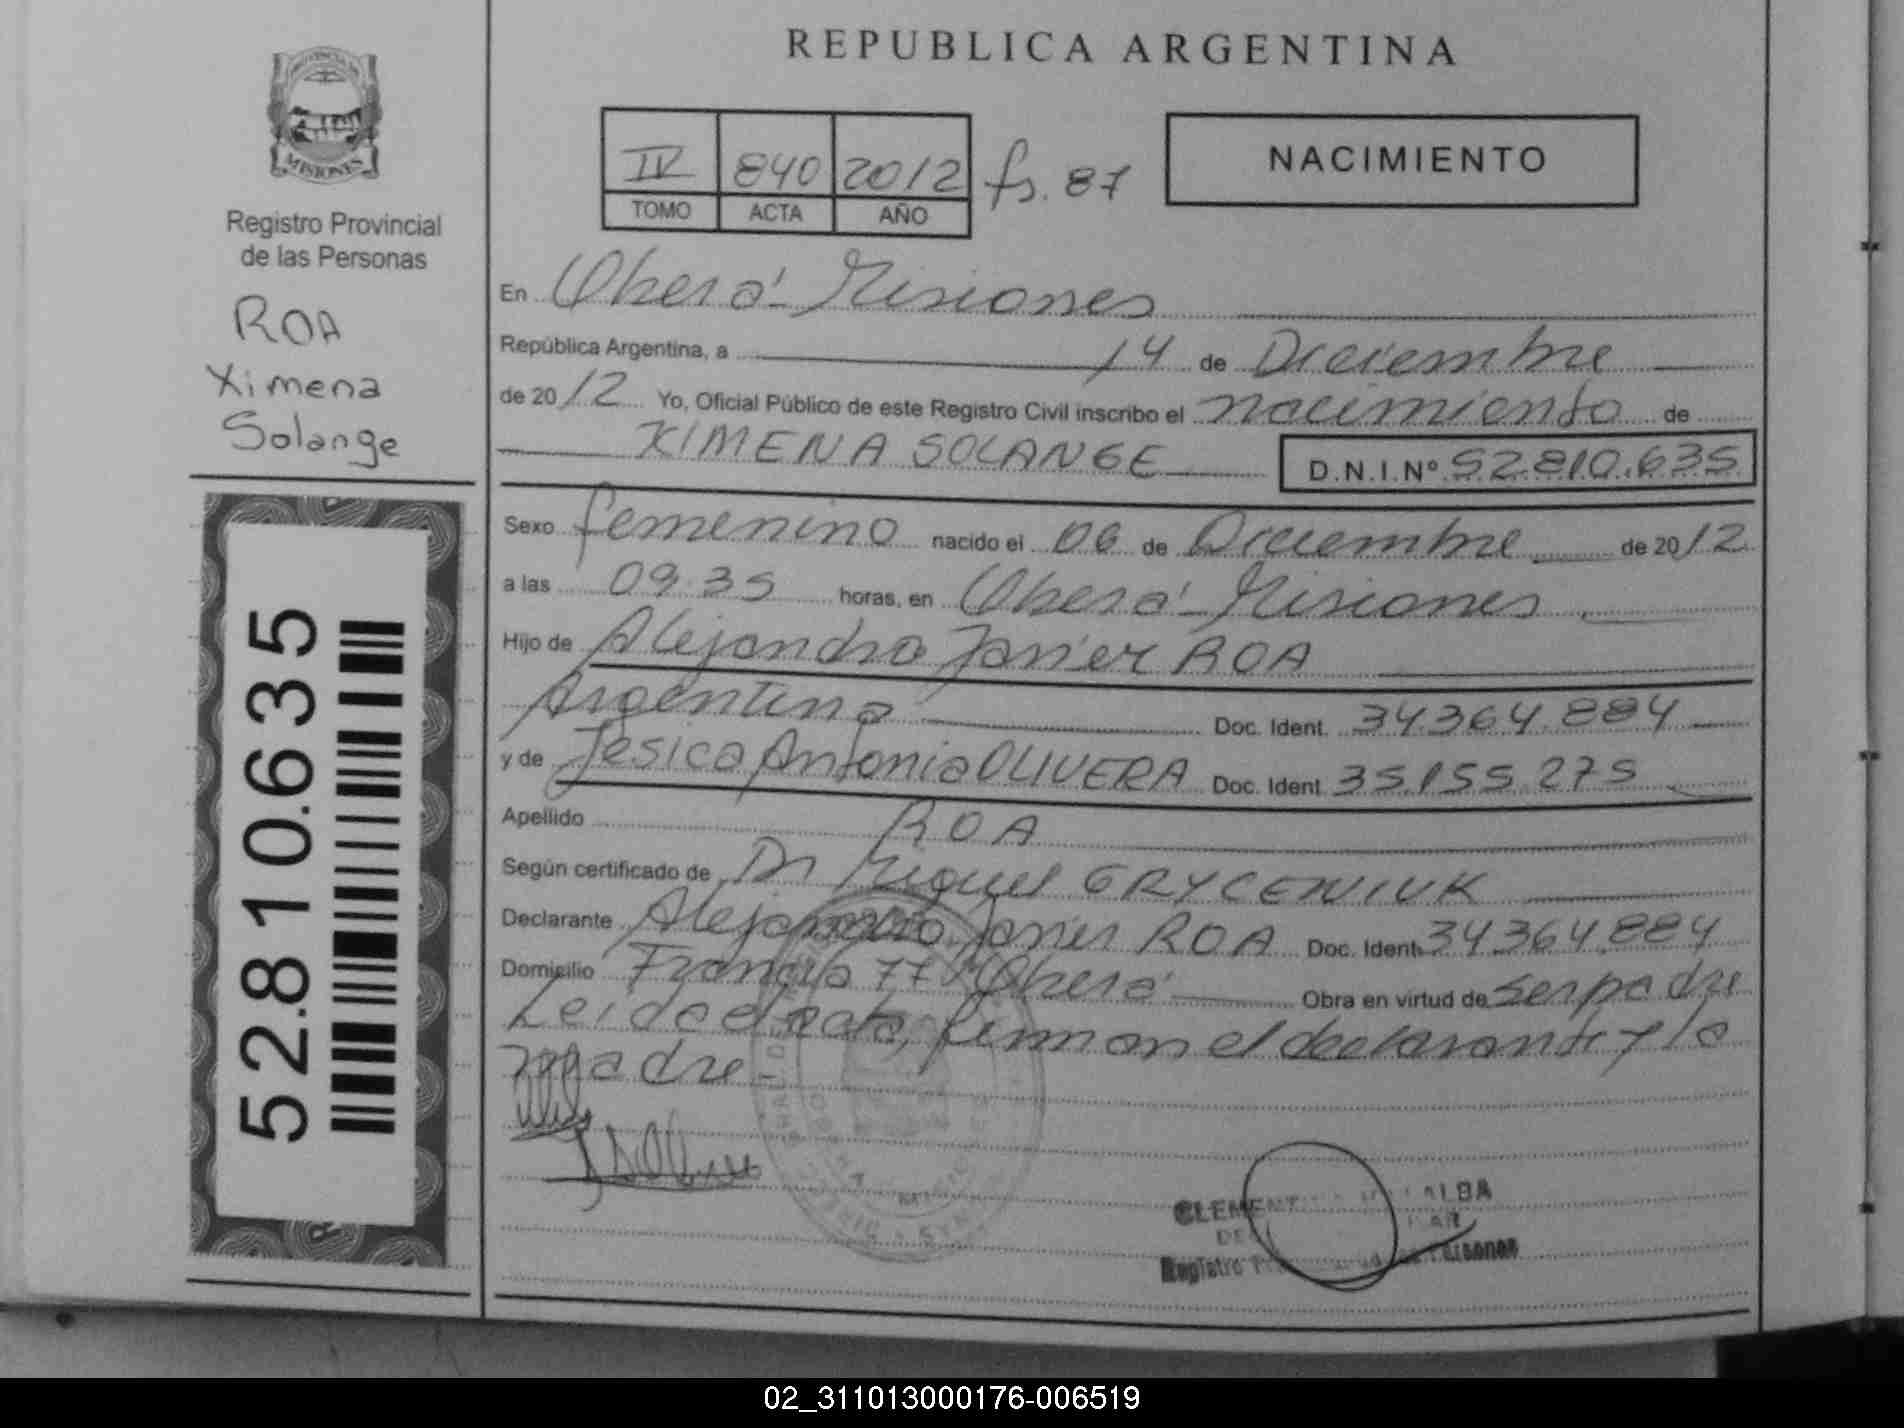 REPUBLICA ARGENTINA
PROVINCIA DE
MISIONES
Registro Provincial
de las Personas
ROA
Ximena
Solange
52.810.635
IV 840 2012 fs. 87
TOMO ACTA AÑO
NACIMIENTO
En Oberá - Misiones
República Argentina, a 14 de Diciembre
de 2012 Yo, Oficial Público de este Registro Civil inscribo el nacimiento de
XIMENA SOLANGE D.N.I.Nº 52.810.635
Sexo femenino nacido el 06 de Diciembre de 2012
a las 09.35 horas, en Oberá - Misiones
Hijo de Alejandro Javier ROA
Argentina Doc. Ident. 34.364.884
y de Jesica Antonia OLIVERA Doc. Ident 35.155.275
Apellido ROA
Según certificado de Dr Miguel GRYCENIUK
Declarante Alejandro Javier ROA Doc. Ident. 34.364.884
Domicilio Francia 77 Oberá Obra en virtud de ser padre
Leída el acta, firman el declarante y la
madre -
Registro Personas
02_311013000176-006519